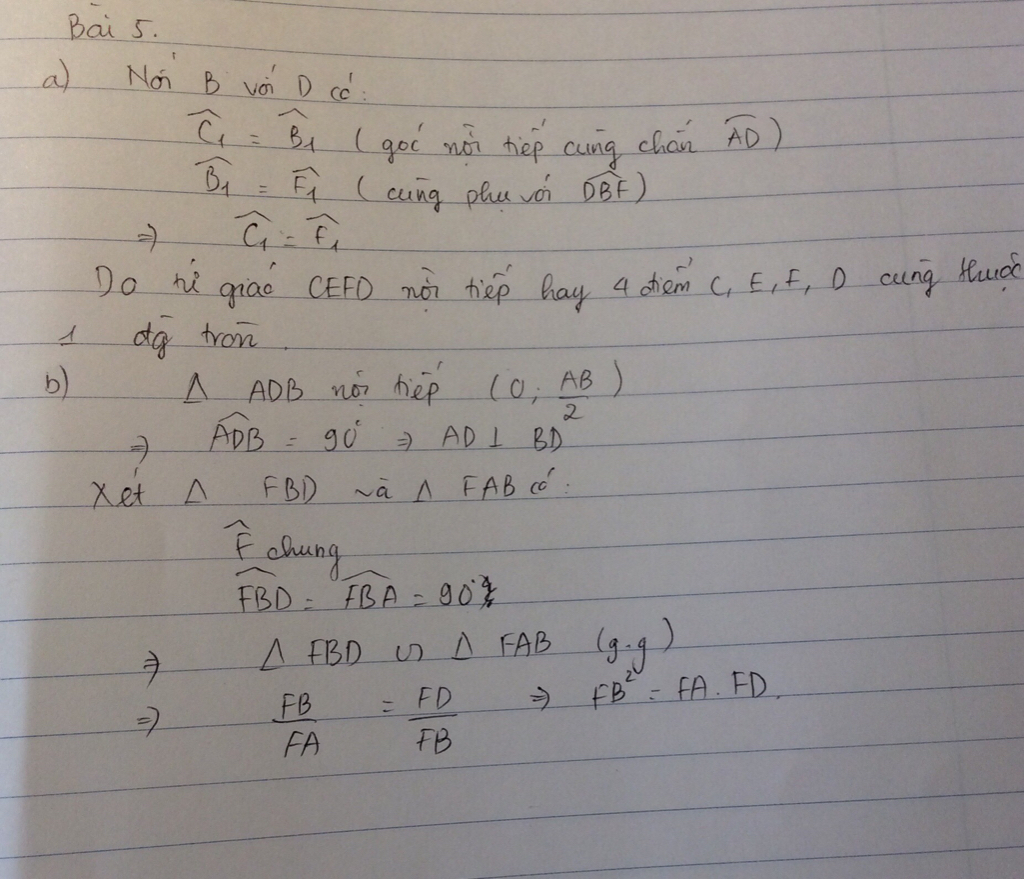 Bài 5.
a) Nối B với D có:
$\widehat{C_1}$ = $\widehat{B_1}$ (góc nội tiếp cùng chắn $\overset{\frown}{AD}$)
$\widehat{B_1}$ = $\widehat{F_1}$ (cùng phụ với $\widehat{DBF}$)
⇒ $\widehat{C_1}$ = $\widehat{F_1}$
Do tứ giác CEFD nội tiếp hay 4 điểm C, E, F, D cùng thuộc
1 đg tròn.
b) Δ ADB nội tiếp (O; $\frac{AB}{2}$)
⇒ $\widehat{ADB}$ = 90° ⇒ AD ⊥ BD
Xét Δ FBD và Δ FAB có:
$\widehat{F}$ chung
$\widehat{FBD}$ = $\widehat{FBA}$ = 90°
⇒ Δ FBD ∽ Δ FAB (g.g)
⇒ $\frac{FB}{FA}$ = $\frac{FD}{FB}$ ⇒ FB² = FA . FD.